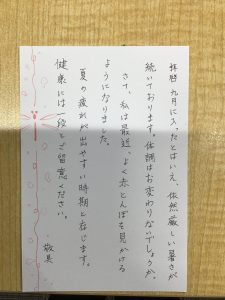 拝啓 九月に入ったとはいえ、依然厳しい暑さが
続いております。体調はお変わりないでしょうか。
さて、私は最近、よく赤とんぼを見かける
ようになりました。
夏の疲れが出やすい時期と存じます。
健康には一段とご留意ください。
敬具